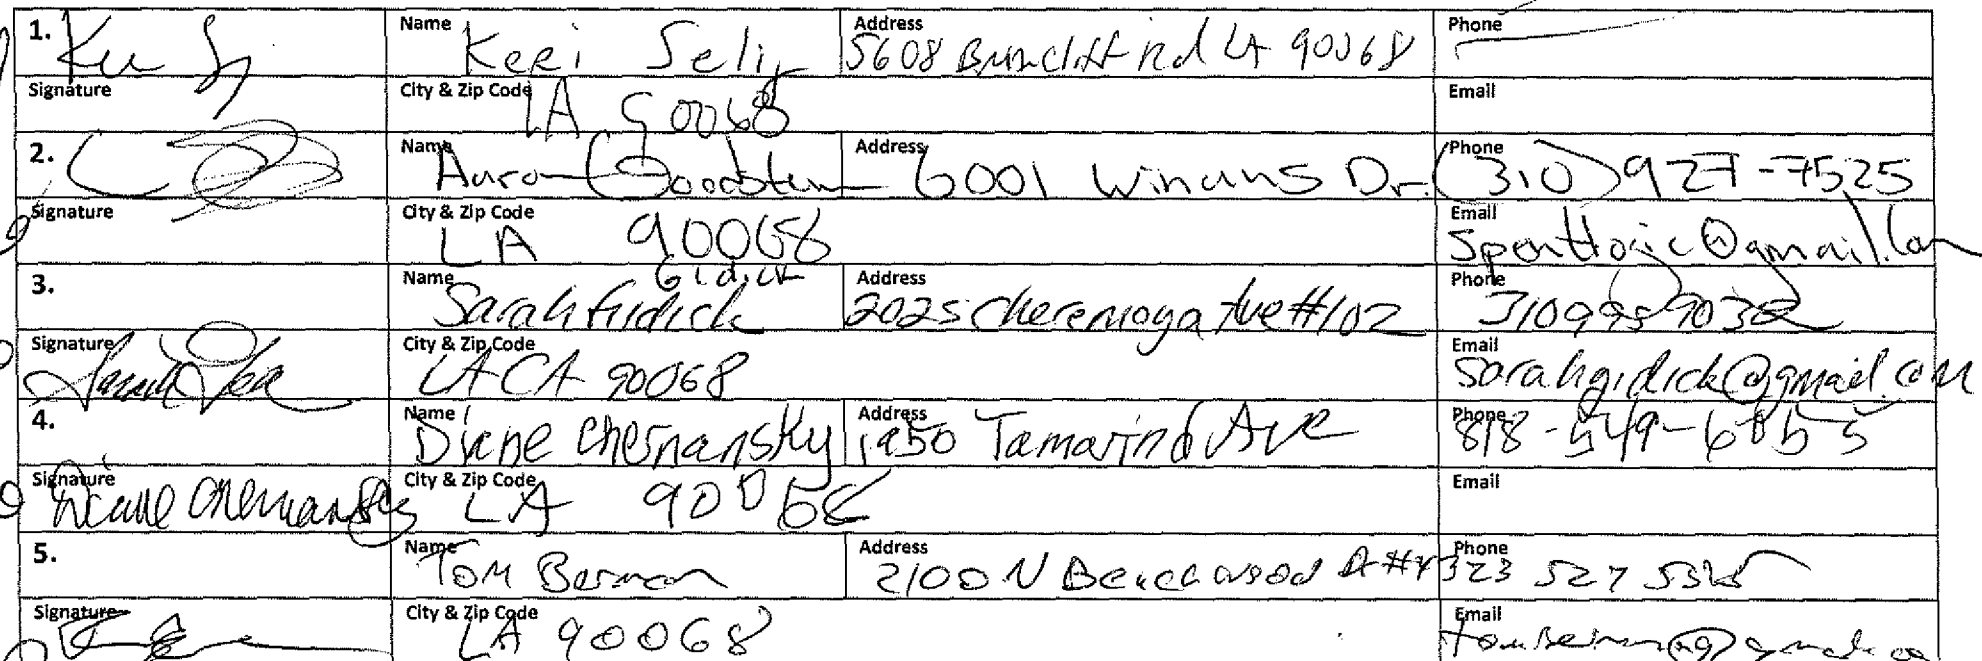 1. Name Keri Selig Address 5608 Briarcliff Rd LA 90068 Phone
Signature City & Zip Code LA 90068 Email
2. Name Aaron Goodstein Address 6001 Winans Dr. Phone (310) 927-7525
Signature City & Zip Code LA 90068 Email @gmail.com
3. Name Gidick Sarah Gidick Address 2025 Cheremoya Ave #102 Phone
Signature City & Zip Code LA CA 90068 Email sarahgidick@gmail.com
4. Name Diane Chernansky Address 1950 Tamarind Ave Phone
Signature Diane Chernansky City & Zip Code LA 90068 Email
5. Name Tom Berman Address 2100 N Beachwood Phone 323 527
Signature City & Zip Code LA 90068 Email